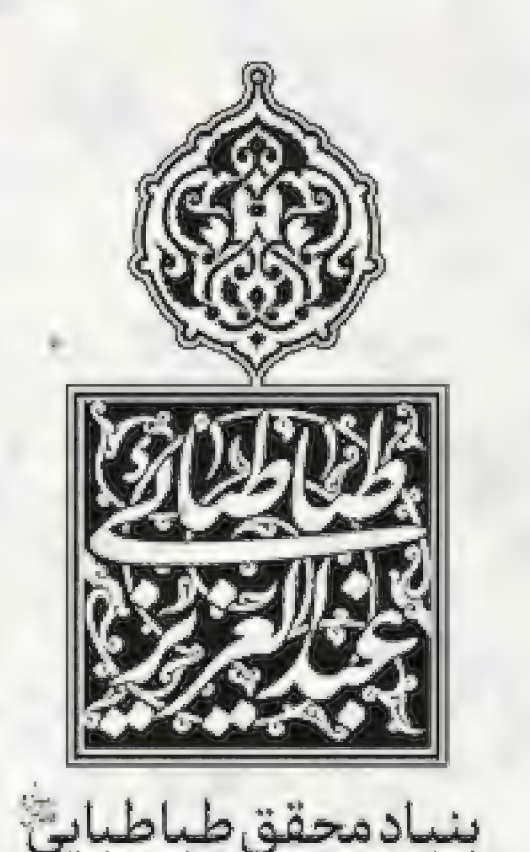 طباطبائی
عبدالعزیز
بنیاد محقق طباطبایی